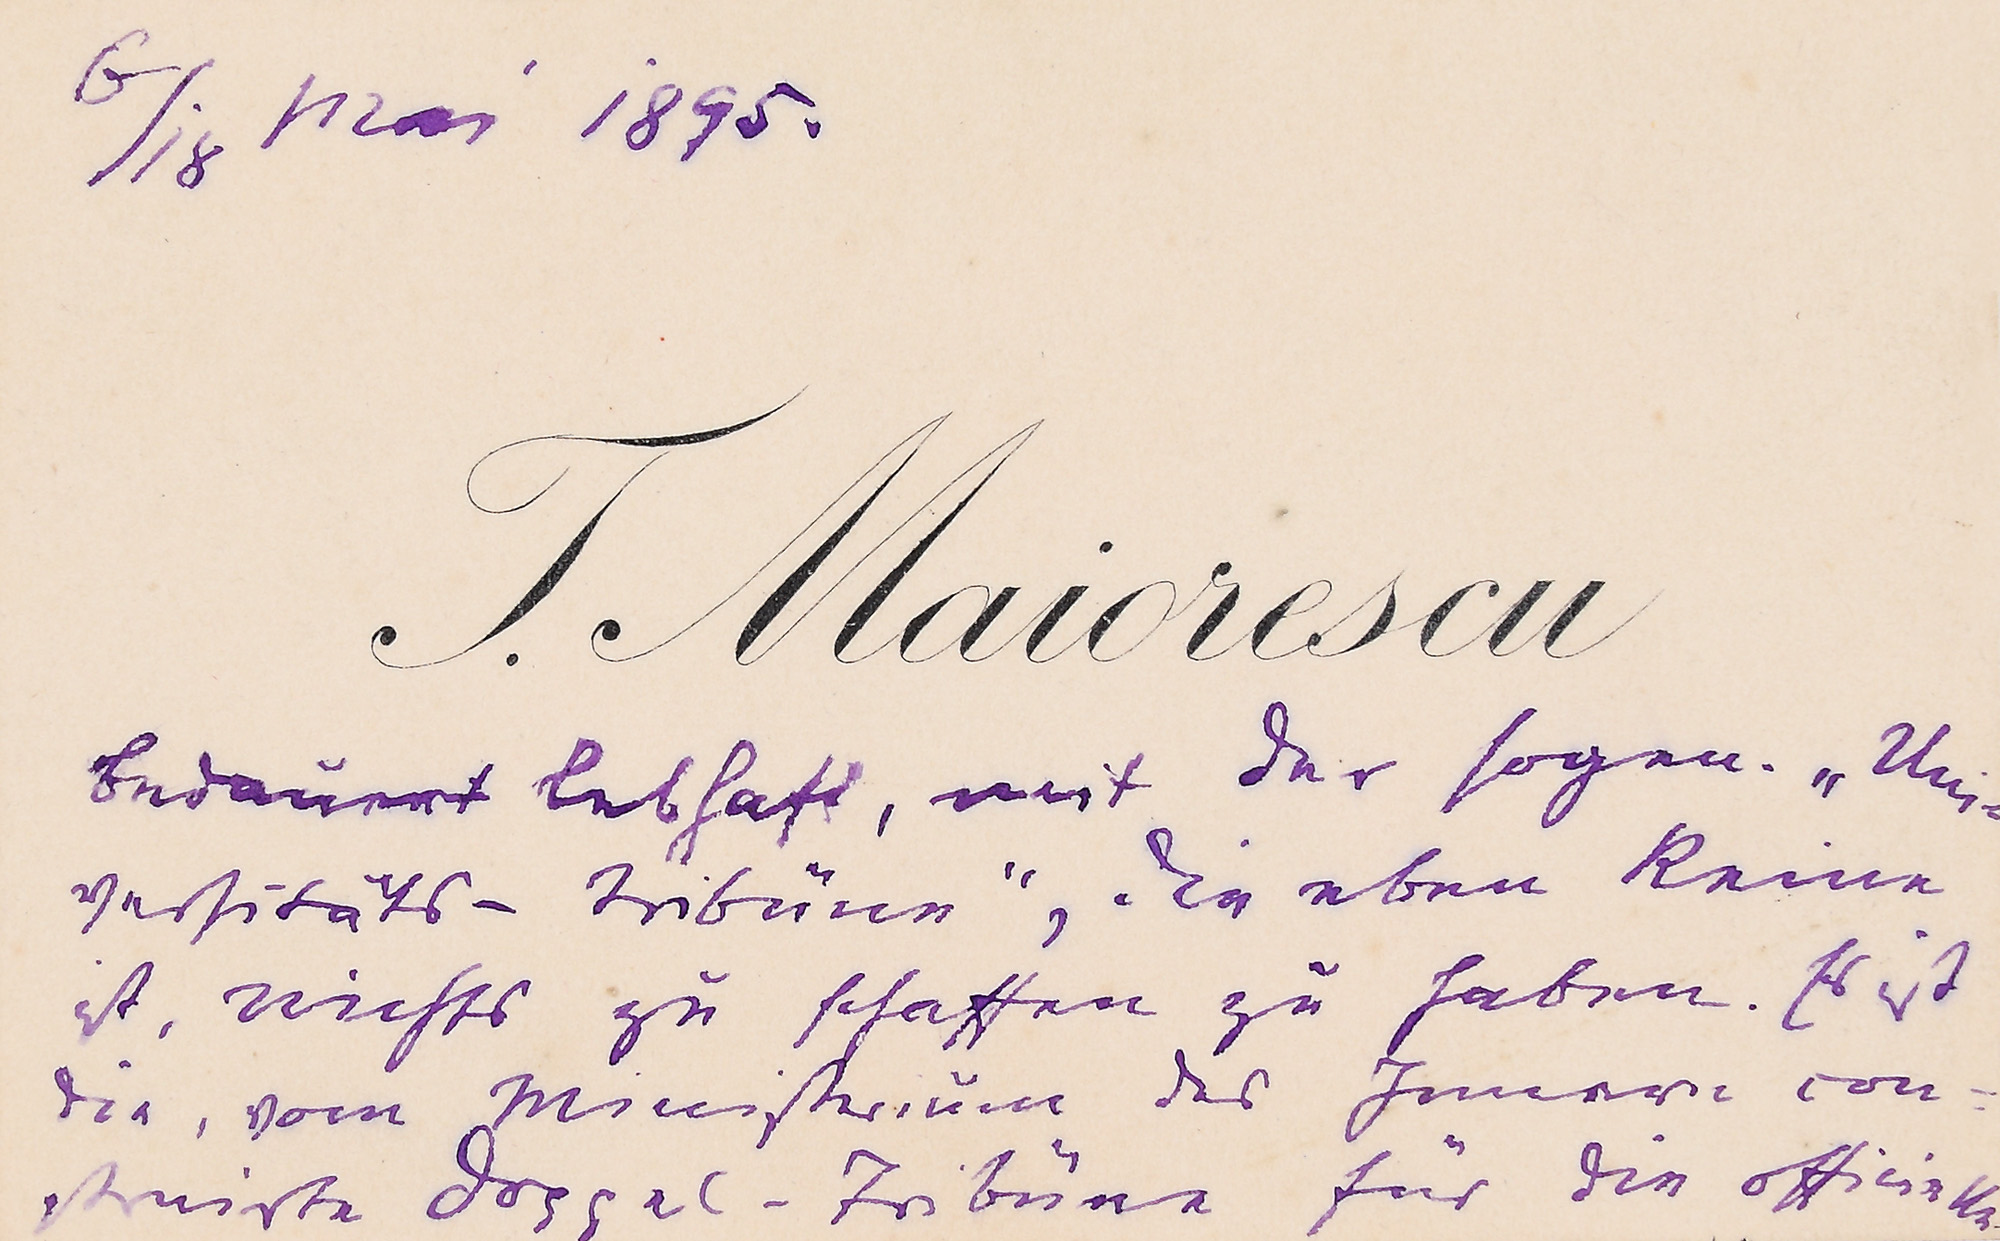 6/18 Mai 1895.
T. Maiorescu
bedauert lebhaft, mit der sogen. „Uni-
versitäts-Tribüne“, die eben keine
ist, nichts zu schaffen zu haben. Es ist
die, vom Ministerium des Innern con-
struirte Doppel-Tribüne für die officielle